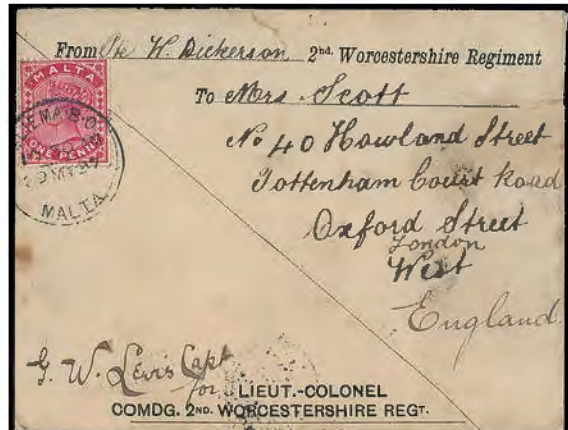 From Pte W. Dickerson 2nd. Worcestershire Regiment
To Mrs Scott
No 40 Howland Street
Tottenham Court Road
Oxford Street
London
West
England
MALTA
ONE PENNY
MALTA
G. W. Lewis Capt
for LIEUT.-COLONEL
COMDG. 2ND. WORCESTERSHIRE REGT.